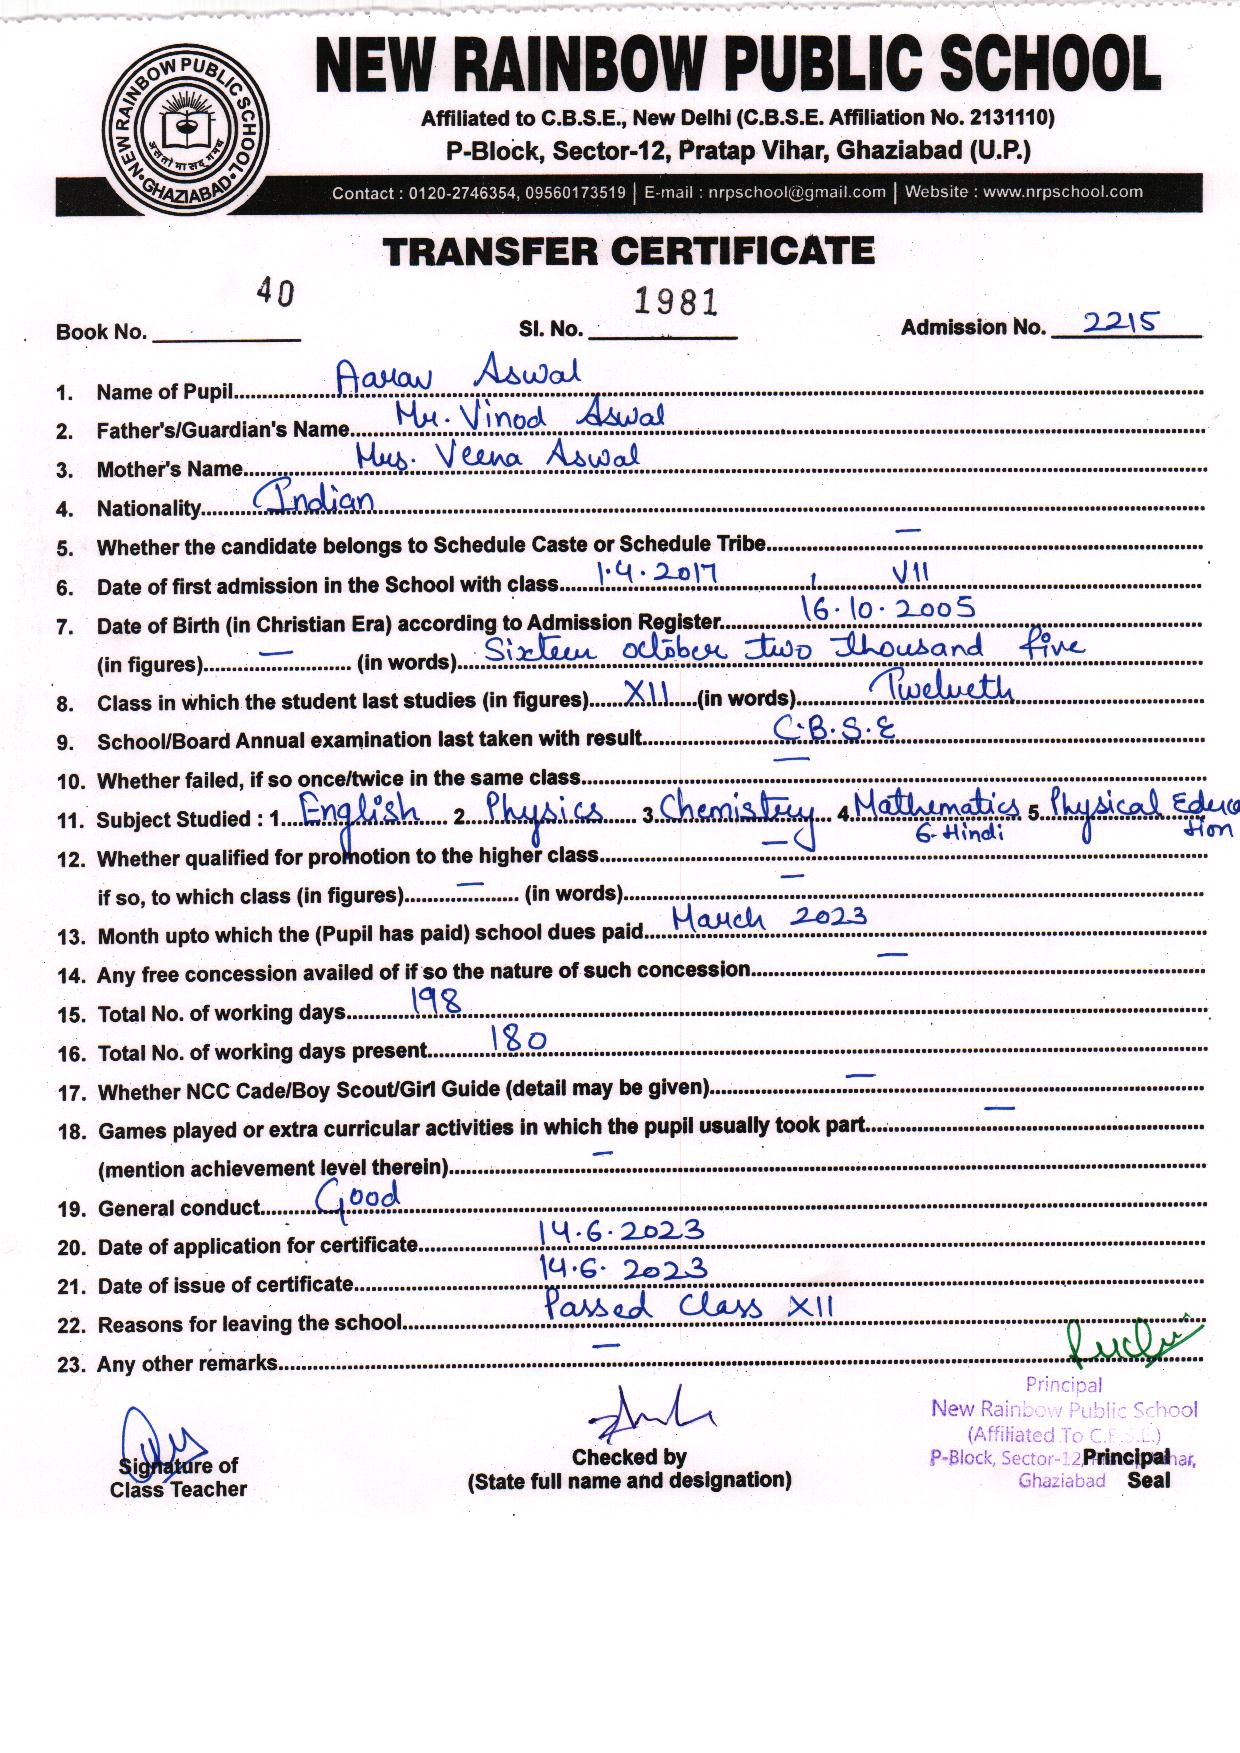 NEW RAINBOW PUBLIC SCHOOL
Affiliated to C.B.S.E., New Delhi (C.B.S.E. Affiliation No. 2131110)
P-Block, Sector-12, Pratap Vihar, Ghaziabad (U.P.)
NEW RAINBOW PUBLIC SCHOOL • GHAZIABAD •
असतो मा सद् गमय
Contact : 0120-2746354, 09560173519 | E-mail : nrpschool@gmail.com | Website : www.nrpschool.com
TRANSFER CERTIFICATE
Book No. 40 Sl. No. 1981 Admission No. 2215
1. Name of Pupil Aarav Aswal
2. Father's/Guardian's Name Mr. Vinod Aswal
3. Mother's Name Mrs. Veena Aswal
4. Nationality Indian
5. Whether the candidate belongs to Schedule Caste or Schedule Tribe —
6. Date of first admission in the School with class 1.4.2017 , VII
7. Date of Birth (in Christian Era) according to Admission Register 16.10.2005
(in figures) — (in words) Sixteen october two thousand five
8. Class in which the student last studies (in figures) XII (in words) Twelveth
9. School/Board Annual examination last taken with result C.B.S.E
10. Whether failed, if so once/twice in the same class —
11. Subject Studied : 1. English 2. Physics 3. Chemistry 4. Mathematics 5. Physical Educa
6. Hindi tion
12. Whether qualified for promotion to the higher class —
if so, to which class (in figures) — (in words) —
13. Month upto which the (Pupil has paid) school dues paid March 2023
14. Any free concession availed of if so the nature of such concession —
15. Total No. of working days 198
16. Total No. of working days present 180
17. Whether NCC Cade/Boy Scout/Girl Guide (detail may be given) —
18. Games played or extra curricular activities in which the pupil usually took part —
(mention achievement level therein) —
19. General conduct Good
20. Date of application for certificate 14.6.2023
21. Date of issue of certificate 14.6.2023
22. Reasons for leaving the school Passed Class XII
23. Any other remarks —
Principal
New Rainbow Public School
(Affiliated To C.B.S.E.)
P-Block, Sector-12, Vihar,
Ghaziabad
Signature of
Class Teacher
Checked by
(State full name and designation)
Principal
Seal